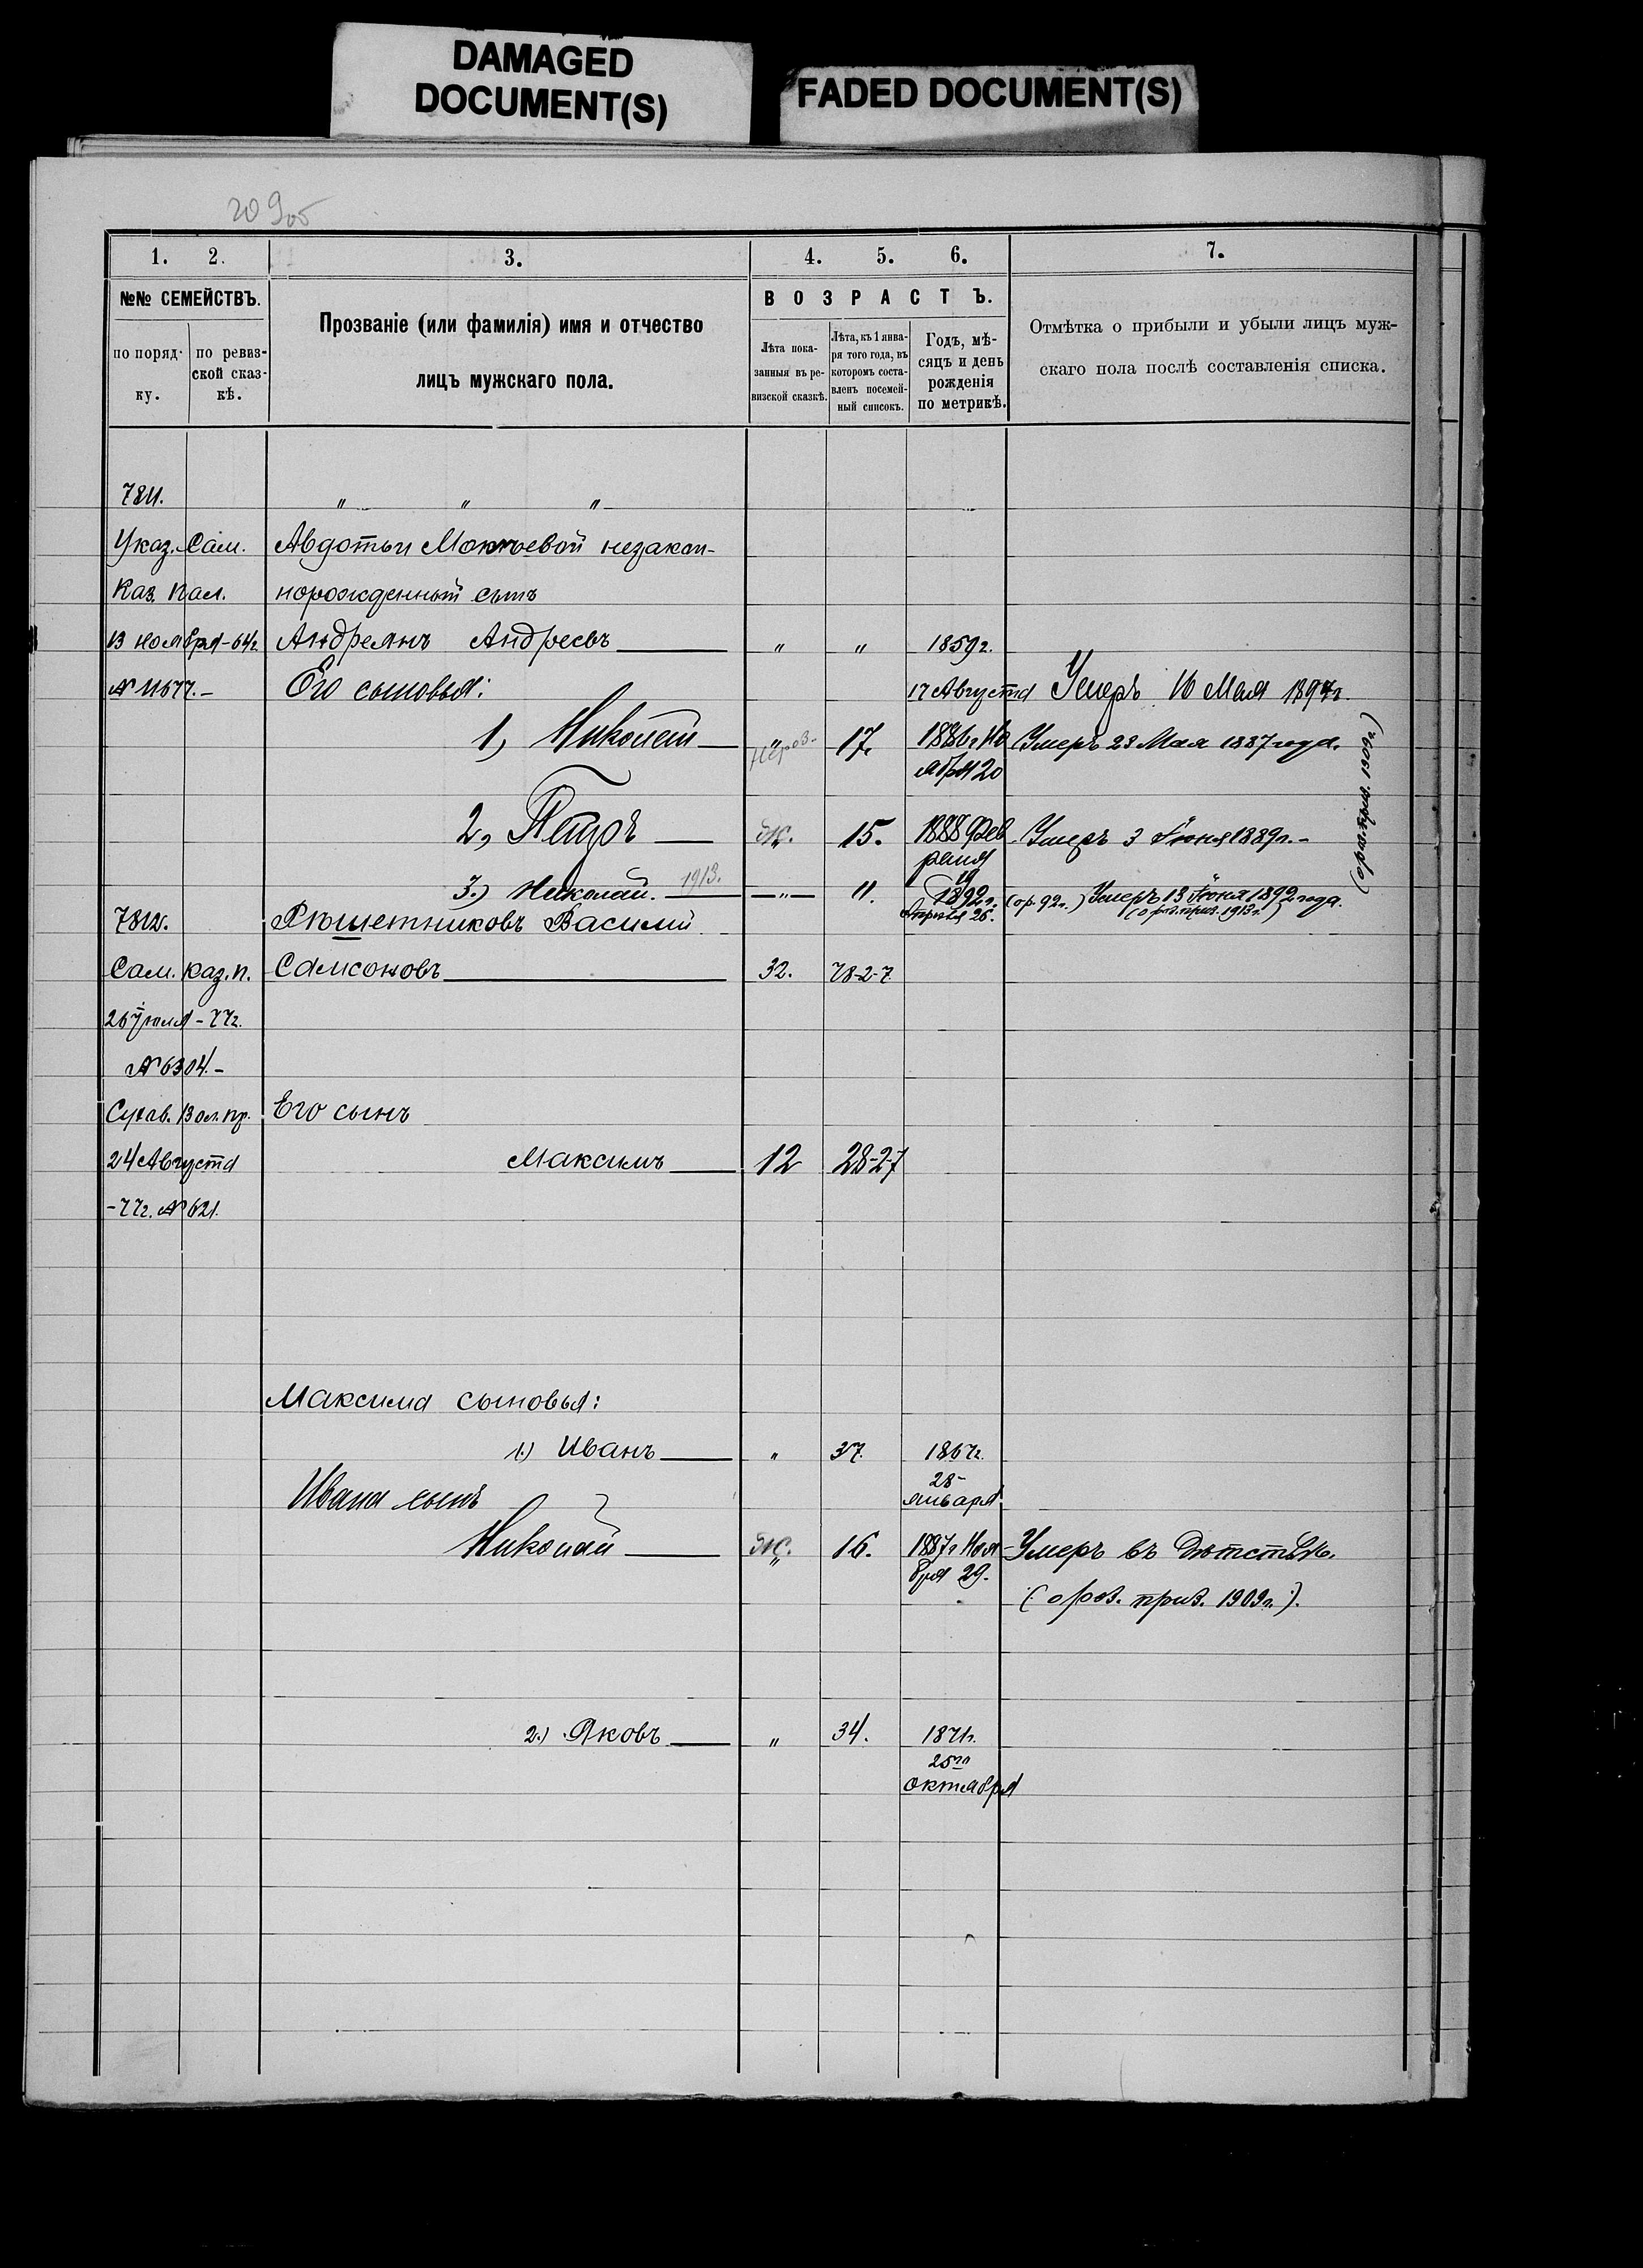 DAMAGED
DOCUMENT(S)
FADED DOCUMENT(S)
209об
1. 2. 3. 4. 5. 6. 7.
№№ СЕМЕЙСТВЪ.
по поряд-
ку.
по ревиз-
ской сказ-
кѣ.
Прозваніе (или фамилія) имя и отчество
лицъ мужскаго пола.
ВОЗРАСТЪ.
Лѣта пока-
занныя въ ре-
визской сказкѣ.
Лѣта, къ 1 янва-
ря того года, въ
которомъ соста-
вленъ посемей-
ный списокъ.
Годъ, мѣ-
сяцъ и день
рожденія
по метрикѣ.
Отмѣтка о прибыли и убыли лицъ муж-
скаго пола послѣ составленія списка.
7811. " " "
Указ. Сам. Авдотьи незакон-
Каз. Пал. норожденный сынъ
13 ноября-64г. Андреянъ Андреевъ " " 1859г.
№ 11677.- Его сыновья: 17 Августа Умеръ 16 Мая 1897г.
1, Николай " 17. 1886г Но Умеръ 23 Мая 1887 года.
ября 20 (ор. приз. 1909г.)
2, Петръ 15. 1888 Фев Умеръ 3 Іюня 1889г.-
раля
19
3.) Николай. 1913. " 11. 1892г. (ор. 92г.) Умеръ 13 Іюня 1892 года.
Апрѣля 26. (о роз. приз. 1913г.)
7812. Рѣшетниковъ Василій
Сам. каз. п. Самсоновъ 32. 78-2-7
26 Іюля-77г.
№ 6304.-
Вол. пр. Его сынъ
24 Августа Максимъ 12 28-2-7
-77г. № 621.
Максима сыновья:
1.) Иванъ " 37. 1867г.
28
января
Ивана сынъ
Николай " 16. 1887г Ноя- Умеръ въ дѣтствѣ.
бря 29.
(о роз. приз. 1909г.).
2.) Яковъ " 34. 1871г.
25го
октября